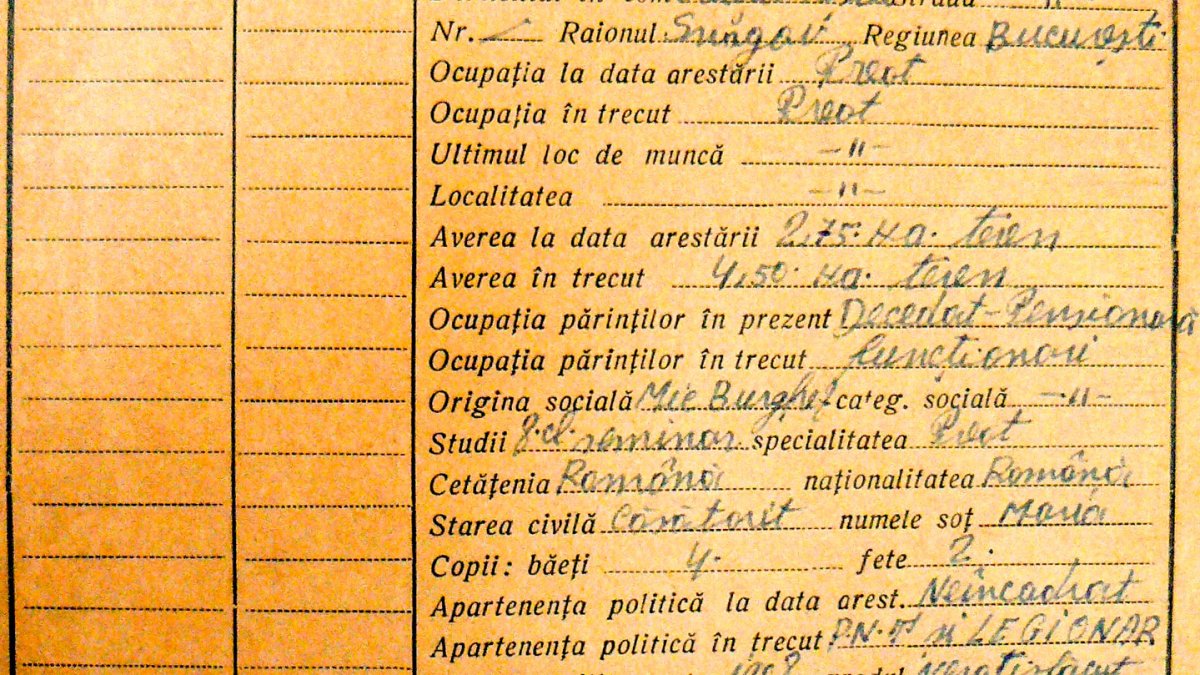 Nr. — Raionul Snagov Regiunea București
Ocupația la data arestării Preot
Ocupația în trecut Preot
Ultimul loc de muncă —"—
Localitatea —"—
Averea la data arestării 2,75 Ha. teren
Averea în trecut 4,50 Ha. teren
Ocupația părinților în prezent Decedat - Pensionară
Ocupația părinților în trecut funcționari
Origina socială Mic Burghez categ. socială —"—
Studii 8 cl. seminar specialitatea Preot
Cetățenia Română naționalitatea Română
Starea civilă Căsătorit numele soț Maria
Copii: băeți 4. fete 2.
Apartenența politică la data arest. Neîncadrat
Apartenența politică în trecut P.N.Ț și LEGIONAR